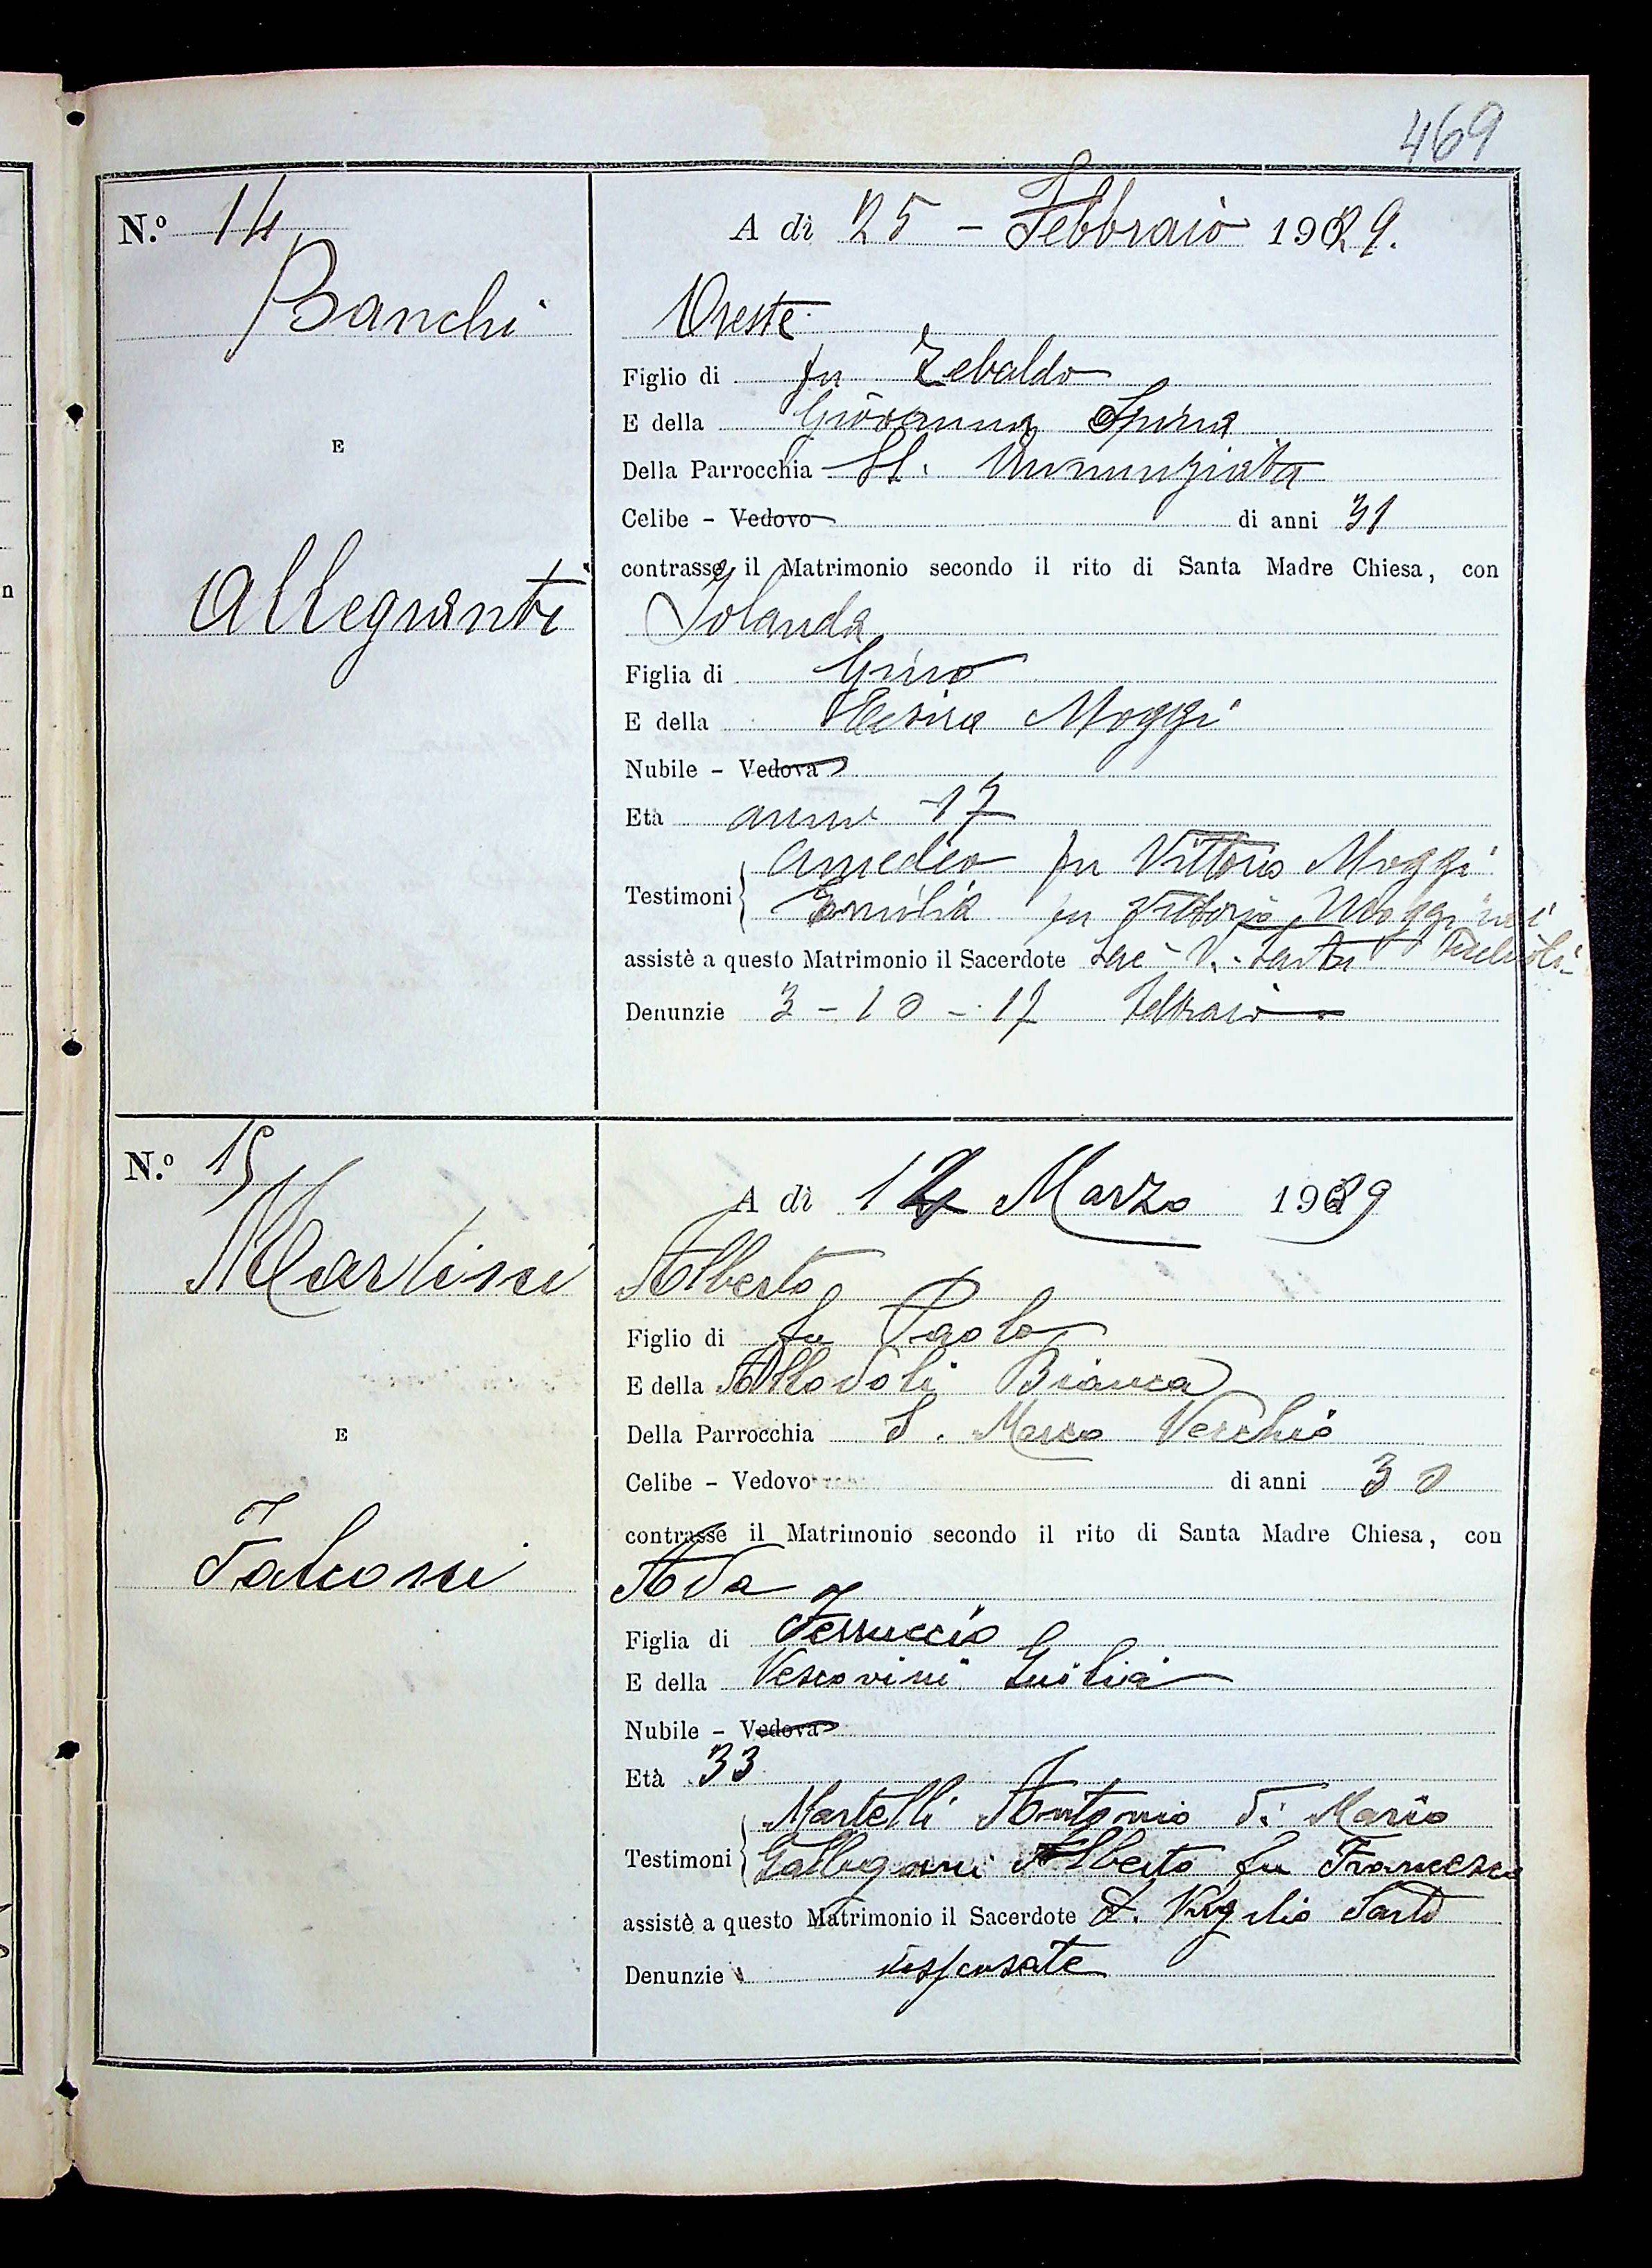 469
N.º 14
A dì 25 - Febbraio 1929.
Banchi
Oreste
Figlio di fu Zebaldo
E della Giovanna Spina
E
Della Parrocchia SS. Annunziata
Celibe - Vedovo di anni 31
contrasse il Matrimonio secondo il rito di Santa Madre Chiesa, con
Allegranti
Jolanda
Figlia di Gino
E della Moggi
Nubile - Vedova
Età anni 17
Amedeo fu Vittorio Moggi
Testimoni
Emilia fu Vittorio Moggi nei
assistè a questo Matrimonio il Sacerdote Sac. V. Sarti
Denunzie 3 - 10 - 17 Febbraio
N.º 15
A dì 12 Marzo 1929
Martini
Alberto
Figlio di fu Paolo
E della Allodoli Bianca
Della Parrocchia S. Marco Vecchio
E
Celibe - Vedovo di anni 30
contrasse il Matrimonio secondo il rito di Santa Madre Chiesa, con
Falconi
Ada
Figlia di Ferruccio
E della Vescovini Giulia
Nubile - Vedova
Età 33
Martelli Antonio di Mario
Testimoni
Galligani Alberto fu Francesco
assistè a questo Matrimonio il Sacerdote D. Virgilio Sarti
Denunzie dispensate